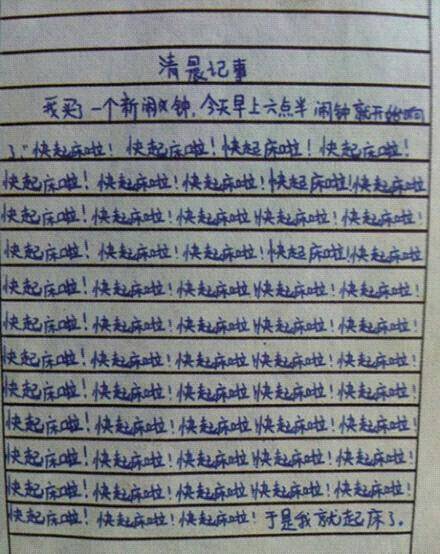 清晨记事
我买了一个新闹钟,今天早上六点半闹钟就开始响
了:"快起床啦!快起床啦!快起床啦!快起床啦!
快起床啦!快起床啦!快起床啦!快起床啦!快起床啦
快起床啦!快起床啦!快起床啦!快起床啦!快起床啦!
快起床啦!快起床啦!快起床啦!快起床啦!快起床啦
快起床啦!快起床啦!快起床啦!快起床啦!快起床啦!
快起床啦!快起床啦!快起床啦!快起床啦!快起床啦!
快起床啦!快起床啦!快起床啦!快起床啦!快起床啦!
快起床啦!快起床啦!快起床啦!快起床啦!快起床啦!
快起床啦!快起床啦!快起床啦!快起床啦!快起床啦!
快起床啦!快起床啦!快起床啦!快起床啦!快起床啦!
快起床啦!快起床啦!快起床啦!快起床啦!快起床啦!
快起床啦!快起床啦!快起床啦!于是我就起床了.